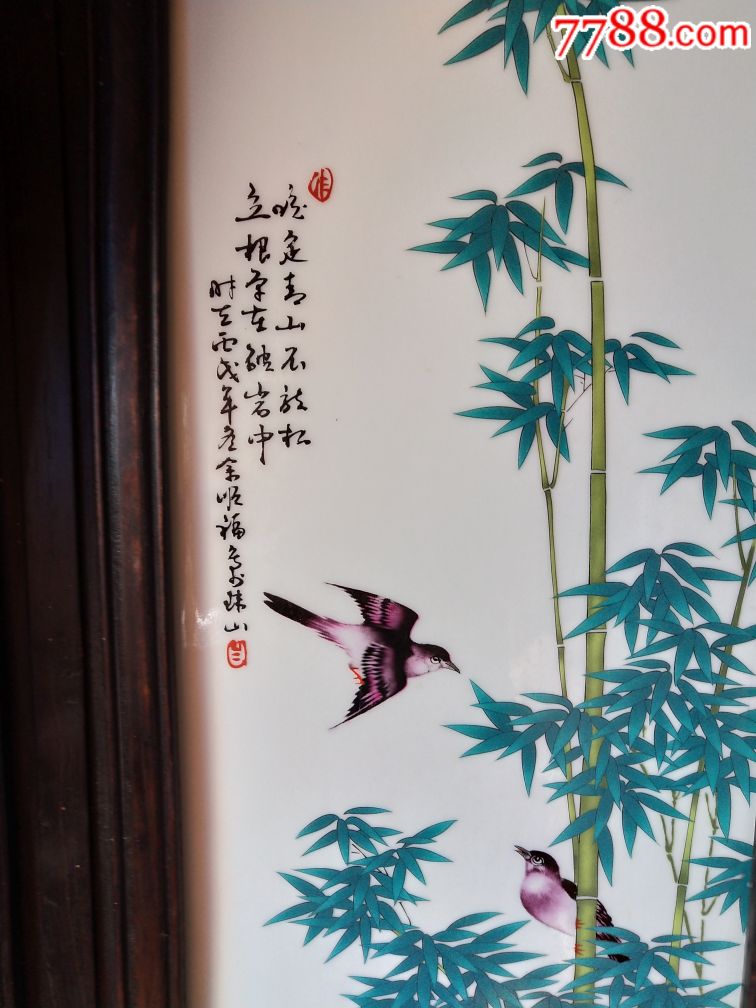 7788.com
咬定青山不放松
立根原在破岩中
时在丙戌年冬余顺福珠山